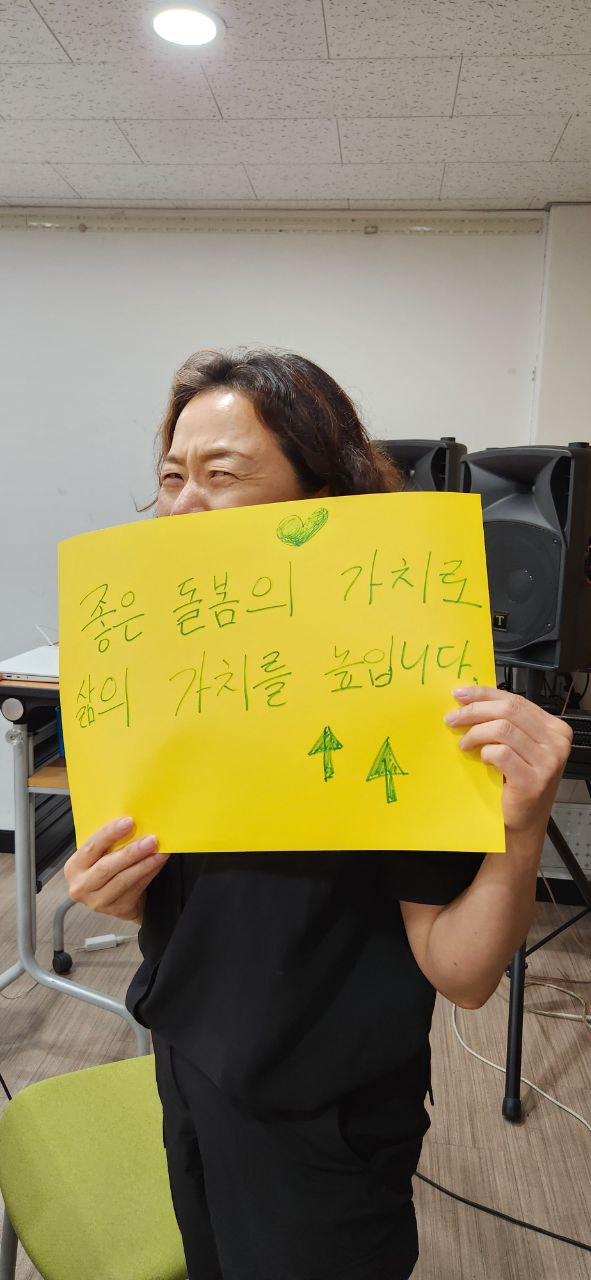 좋은 돌봄의 가치로
삶의 가치를 높입니다.